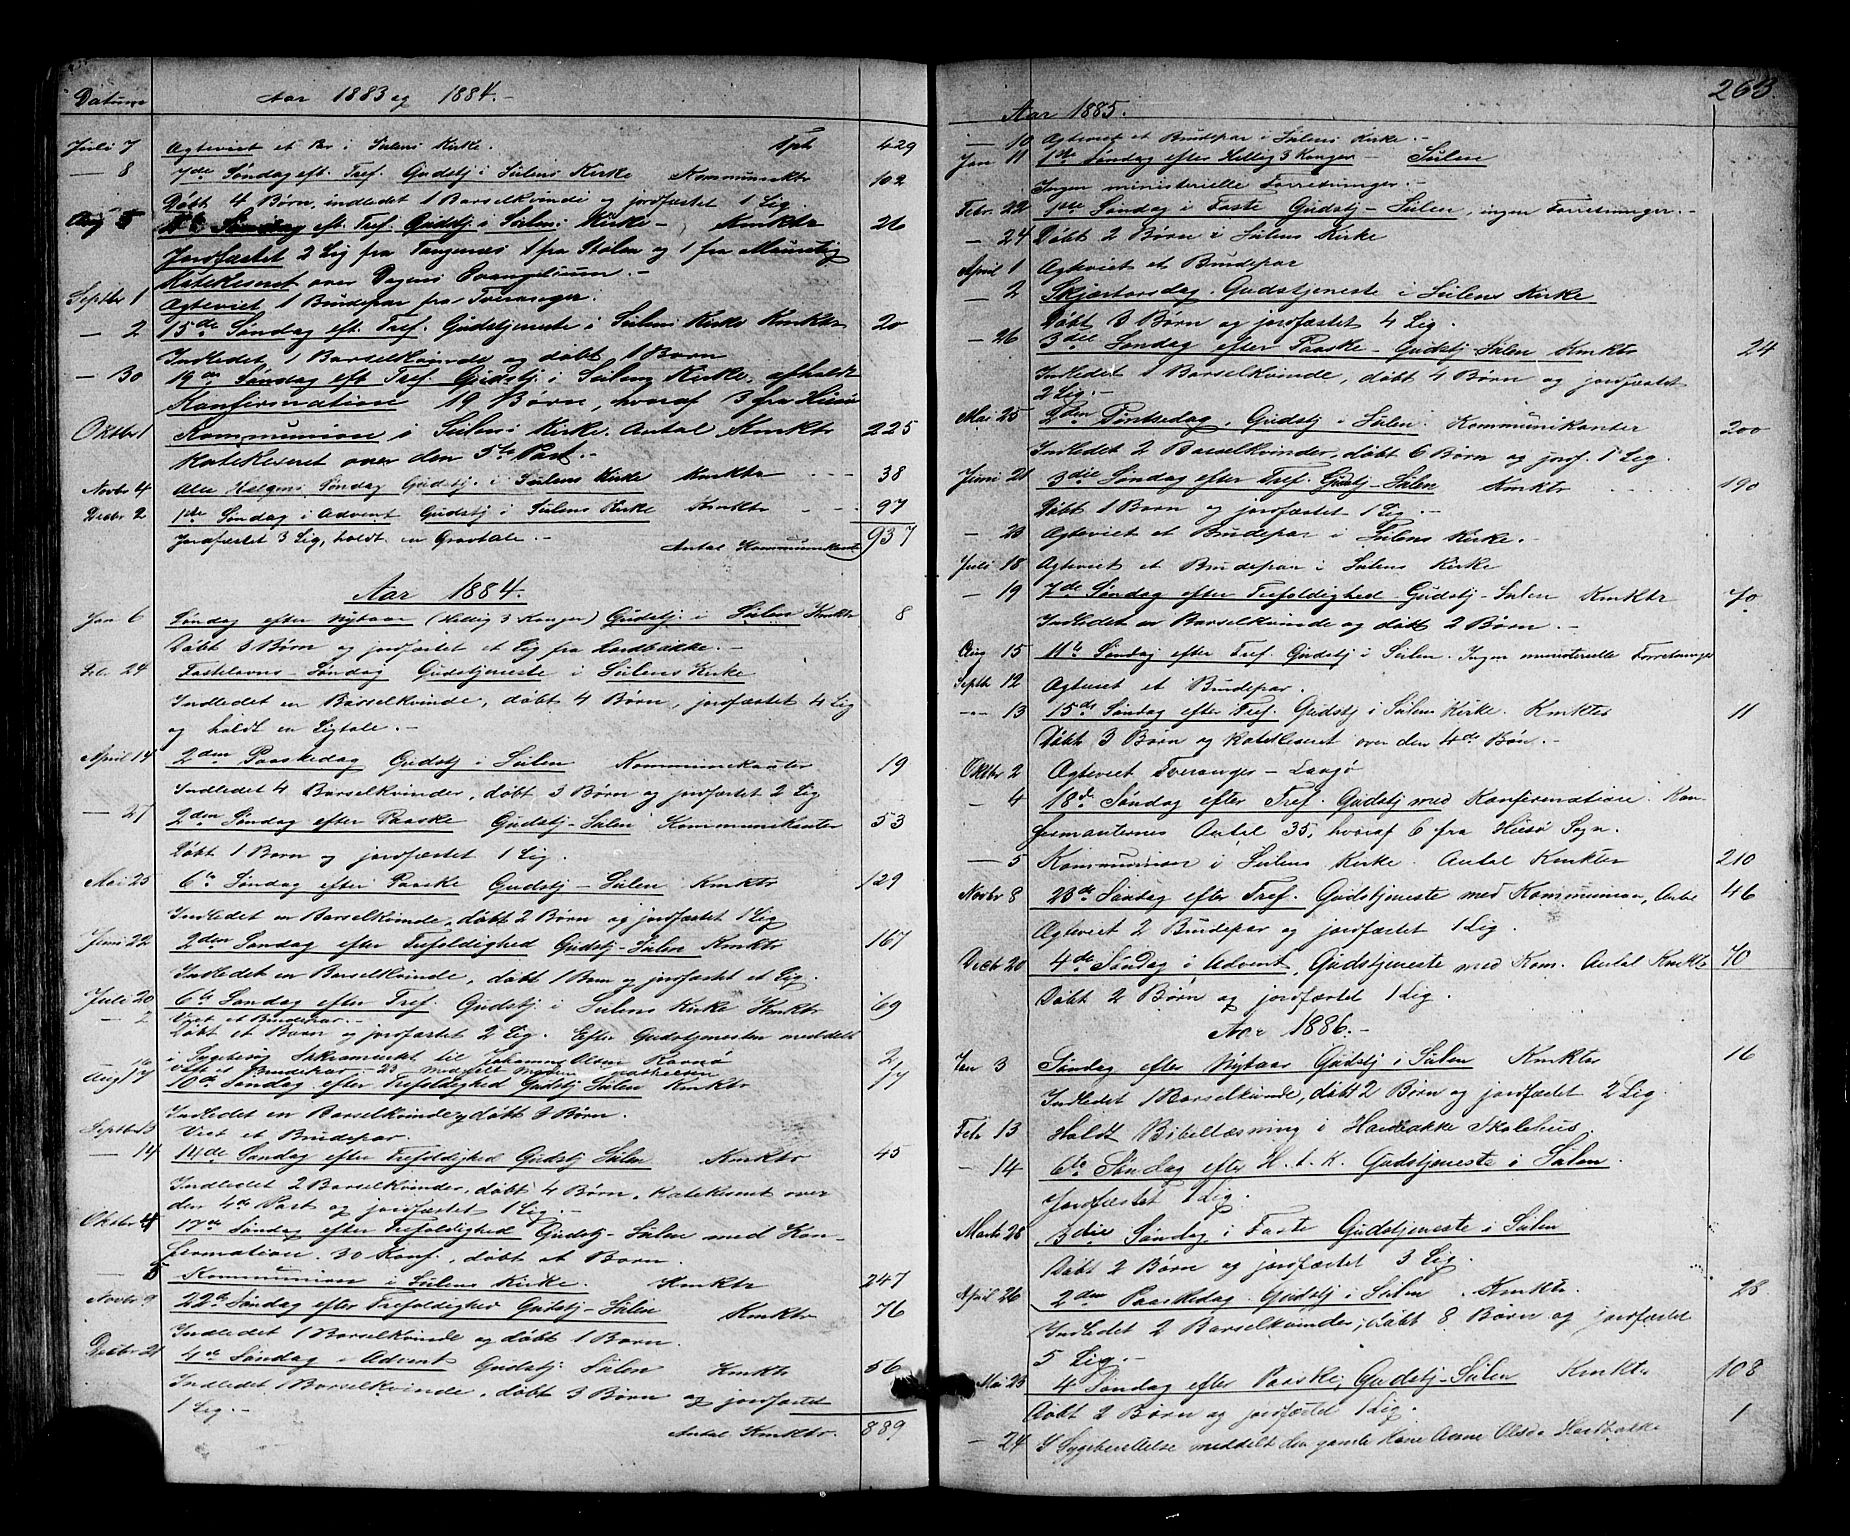 Datum Aar 1883 og 1884.-
Juli 7 Agteviet et Par i Sulens Kirke. Tph 429
— 8 7de Søndag eft. Tref. Gudstj. i Sulens Kirke Kommunktr 102
Døbt 4 Børn, indledet 1 Barselkvinde og jordfæstet 1 Lig.
Aug 5 Søndag eft. Tref. Gudstj. i Sulens Kirke - Kmktr 26
Jordfæstet 2 Lig fra Tangenes 1 fra Stolen og 1 fra
Katekiseret over Dagens Evangelium.-
Septbr 1 Agteviet 1 Brudepar fra Tveranger.
— 2 15de Søndag eft. Tref. Gudstjeneste i Sulens Kirke Kmktr 20
Indledet 1 Barselkvinde og døbt 1 Barn
— 30 19de Søndag eft Tref. Gudstj. i Sulens Kirke, afholdt
Konfirmation 19 Børn, hvoraf 3 fra Husø
Oktbr 1 Kommunion i Sulens Kirke. Antal Kmktr 225
Katekiseret over den 5te Part.-
Novbr 4 Alle Helgens Søndag Gudstj. i Sulens Kirke Kmktr - - - 38
Decbr 2 1ste Søndag i Advent Gudstj i Sulens Kirke Kmktr - - 97
Jordfæstet 3 Lig, holdt en Gravtale.- Antal Kommunikanter 937
Aar 1884.
Jan 6 Søndag efter Nytaar (Hellig 3 Konger) Gudstj. i Sulens Kmktr 8
Døbt 3 Børn og jordfæstet et Lig fra Hardbakke.-
Feb. 24 Fastelavns-Søndag Gudstjeneste i Sulens Kirke
Indledet en Barselkvinde, døbt 4 Børn, jordfæstet 4 Lig
og holdt en Ligtale.-
April 14 2den Paaskedag Gudstj i Sulen Kommunikanter 19
Indledet 4 Barselkvinder, døbt 3 Børn og jordfæstet 2 Lig
— 27 2den Søndag efter Paaske Gudstj-Sulen Kommunikanter 53
Døbt 1 Barn og jordfæstet 1 Lig.
Mai 25 6te Søndag efter Paaske Gudstj-Sulen Kmktr 129
Indledet en Barselkvinde, døbt 2 Børn og jordfæstet 1 Lig
Juni 22 2den Søndag efter Trefoldighed Gudstj-Sulen Kmktr 167
Indledet en Barselkvinde, døbt 1 Barn og jordfæstet et Lig.
Juli 20 6te Søndag efter Tref. Gudstj. i Sulens Kirke Kmktr 69
— 2 Viet et Brudepar.-
Døbt et Barn og jordfæstet 2 Lig. Efter Gudstjenesten meddelt
i Sakramentet til Johanne Olsen Ravnø 2
Viet et Brudepar - 23
Aug 17 10de Søndag efter Trefoldighed Gudstj Sulen Kmktr 17
Indledet en Barselkvinde, døbt 3 Børn.
Septbr 13 Viet et Brudepar.
— 14 14de Søndag efter Trefoldighed Gudstj Sulen Kmktr 45
Indledet 2 Barselkvinder, døbt 4 Børn, katekiseret over
den 4de Part og jordfæstet 1 Lig.-
Oktbr 4 17de Søndag efter Trefoldighed Gudstj-Sulen med Kon-
firmation. 30 Konf., døbt et Barn.
5 Kommunion i Sulens Kirke. Kmktr 247
Novbr 9 22de Søndag efter Trefoldighed Gudstj-Sulen Kmktr 76
Indledet 1 Barselkvinde og døbt 1 Barn.
Decbr 21 4de Søndag i Advent Gudstj. Sulen Kmktr 56
Indledet 1 Barselkvinde, døbt 3 Børn og jordfæstet
1 Lig.-
Antal Kmktr. 889
263
Aar 1885.
— 10 Agteviet et Brudepar i Sulens Kirke.-
Jan 11 1ste Søndag efter Hellig 3 Konger - Sulen
Ingen ministerielle Forretninger.-
Febr. 22 1ste Søndag i Faste Gudstj-Sulen, ingen Forretninger.-
— 24 Døbt 2 Børn i Sulens Kirke
April 1 Agteviet et Brudepar
— 2 Skjærtorsdag. Gudstjeneste i Sulens Kirke
Døbt 3 Børn og jordfæstet 4 Lig.
— 26 3die Søndag efter Paaske - Gudstj-Sulen Kmktr 24
Indledet 1 Barselkvinde, døbt 4 Børn og jordfæstet
2 Lig.-
Mai 25 2den Pintsedag. Gudstj i Sulen. Kommunikanter 200
Indledet 2 Barselkvinder, døbt 6 Børn og jordf. 1 Lig.
Juni 21 3die Søndag efter Tref. Gudstj-Sulen Kmktr - - - - 190
Døbt 1 Barn og jordfæstet 1 Lig.-
— 23 Agteviet et Brudepar i Sulens Kirke.-
Juli 18 Agteviet et Brudepar i Sulens Kirke
— 19 7de Søndag efter Trefoldighed Gudstj-Sulen Kmktr 70
Indledet en Barselkvinde og døbt 2 Børn.-
Aug 15 11te Søndag efter Tref. Gudstj i Sulen. Ingen ministerielle Forretninger
Septb 12 Agteviet et Brudepar.
— 13 15de Søndag efter Tref. Gudstj i Sulens Kirke. Kmktr 11
Døbt 3 Børn og katekiseret over den 4de Bøn.-
Oktbr 2 Agteviet Tveranger - Langø
— 4 18de Søndag efter Tref. Gudstj med Konfirmation. Kon-
firmanternes Antal 35, hvoraf 6 fra Husø Sogn.
— 5 Kommunion i Sulens Kirke. Antal Kmktr 210
Novbr 8 23de Søndag efter Tref. Gudstjeneste med Kommunion, Antal 46
Agteviet 2 Brudepar og jordfæstet 1 Lig.
Decbr 20 4de Søndag i Advent, Gudstjeneste med Kom. Antal Kmktr 70
Døbt 2 Børn og jordfæstet 1 Lig.
Aar 1886.-
Jan 3 Søndag efter Nytaar Gudstj i Sulen Kmktr 16
Indledet 1 Barselkvinde, døbt 2 Børn og jordfæstet 2 Lig.
Feb 13 Holdt Bibellæsning i Hardbakke Skolehus.
— 14 6te Søndag efter H. t. K. Gudstjeneste i Sulen.
Jordfæstet 1 Lig.
Marts 28 3die Søndag i Faste Gudstjeneste i Sulen
Døbt 2 Børn og jordfæstet 3 Lig.
April 26 2den Paaskedag. Gudstj i Sulen. Kmktr. 28
Indledet 2 Barselkvinder, døbt 8 Børn og jordfæstet
5 Lig.-
Mai 23 4 Søndag efter Paaske, Gudstj-Sulen Kmktr 108
Døbt 2 Børn og jordfæstet 1 Lig.
— 24 I Sygeberettelse meddelt den gamle Kone Anne Olsd. Hardbakke 1